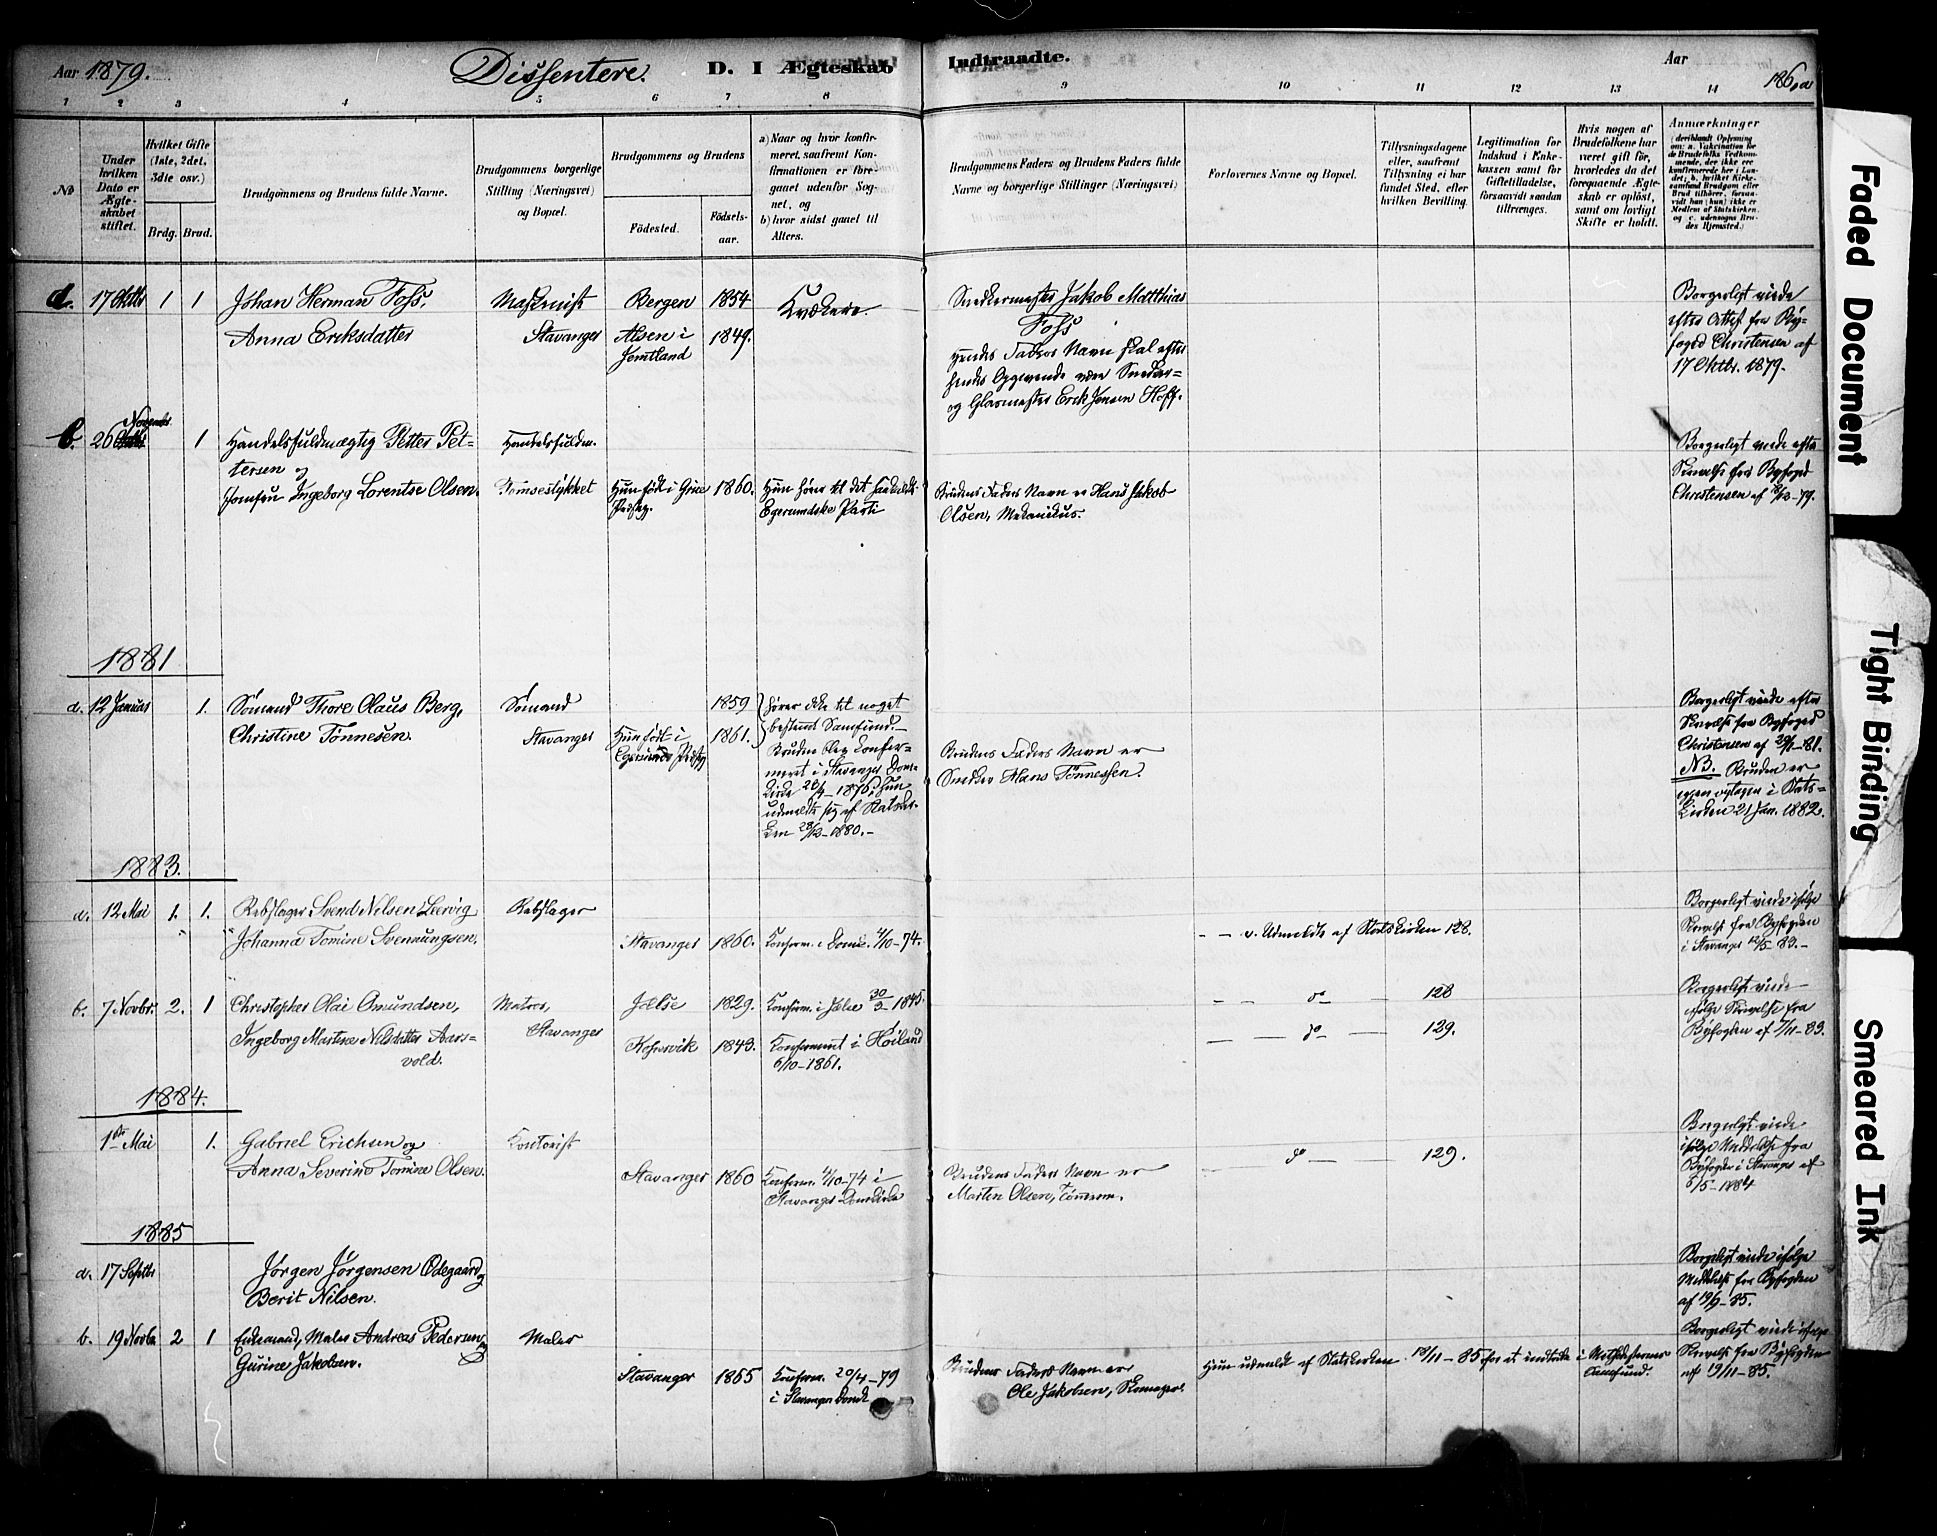 Aar 1879.
Dissentere.
D. I Ægteskab Indtraadte.
Aar
186, a
1 2 3 4 5 6 7 8 9 10 11 12 13 14
No
Under hvilken Dato er Ægteskabet stiftet.
Hvilket Gifte (1ste, 2det, 3die osv.)
Brdg. Brud.
Brudgommens og Brudens fulde Navne.
Brudgommens borgerlige Stilling (Næringsvei) og Bopæl.
Brudgommens og Brudens
Fødested.
Fødselsaar.
a) Naar og hvor konfirmeret, saafremt Konfirmationen er foregaaet udenfor Sognet, og
b) hvor sidst gaaet til Alters.
Brudgommens Faders og Brudens Faders fulde Navne og borgerlige Stillinger (Næringsvei)
Forlovernes Navne og Bopæl.
Tillysningsdagene eller, saafremt Tillysning ei har fundet Sted, efter hvilken Bevilling.
Legitimation for Indskud i Enkekassen samt for Giftetilladelse, forsaavidt saadan tiltrænges.
Hvis nogen af Brudefolkene har været gift før, hvorledes da det foregaaende Ægteskab er opløst, samt om lovligt Skifte er holdt.
Anmærkninger
(deriblandt Oplysning om: a. Vakcination for de Brudefolks Vedkommende, der ikke ere konfirmerede her i Landet; b. hvilket Kirkesamfund Brudgom eller Brud tilhører, forsaavidt han (hun) ikke er Medlem af Statskirken, og c. udensogns Brudes Hjemsted.)
a. 17 Oktbr 1 1
Johan Herman Foss,
Anna Eriksdatter
Maskinist
Stavanger
Bergen 1854
Alsen i Jemtland 1849.
Kvækere.
Snedkermester Jakob Matthias
Foss
Hendes Faders Navn skal efter
hendes Opgivende være Snedker-
og Glasmester Erik Jonsen Hoff.
Borgerligt viede
efter Attest fra By-
foged Christensen af
17 Oktbr. 1879.
b. 26 November 1
Handelsfuldmægtig Petter Pet-
tersen og
Jomfru Ingeborg Lorentse Olsen.
Handelsfuldm.
Hun født i 1860.
Hun hører til det saakaldte
Egersundske Parti
Brudens Faders Navn er Hans Jakob
Olsen, Mekanikus.
Borgerligt viede efter
Skrivelse fra Byfoged
Christensen af
1881
a. 12 Januar 1.
Sømand Thore Olaus Berg,
Christine Tønnesen.
Sømand
Stavanger
1859
Hun født i
Egersund Præstg 1861.
hører ikke til noget
bestemt Samfund.
Bruden blev konfir-
meret i Stavanger Dom-
kirke 1876; hun
udmeldte sig af Statskir-
ken 28/12-1880.-
Brudens Faders Navn er
Snedker Hans Tønnessen.
Borgerligt viede efter
Skrivelse fra Byfoged
Christensen af
NB. Bruden er
igjen optagen i Stats-
kirken 21 Jan. 1882.
1883.
a. 12 Mai 1. 1.
Rebslager Svend Nilsen Leervig
Johanna Tomine Svennungsen.
Rebslager
Stavanger 1860.
Konfirm. i Domk. 4/10-74.
- - v. Udmeldte af Statskirken 128.
Borgerligt viede ifølge
Skrivelse fra Byfogden
i Stavanger 12/5-83.-
b. 7 Novbr. 2. 1
Christopher Olai Omundsen,
Ingeborg Martine Nilsdatter Aars-
vold.
Matros,
Stavanger
Jælse 1829.
Kopervik 1843.
Konfirm. i Jælse 30/3 1845.
Konfirmeret i Høiland
6/10-1861.
- - do - 128
- - do - 129.
Borgerligt viede
ifølge Skrivelse fra
Byfogden af 7/11-83.
1884.
1ste Mai 1.
Gabriel Erichsen og
Anna Severine Tomine Olsen.
Kontorist
Stavanger 1860
Konfirm. 4/10-74 i
Stavanger Domkirke
Brudens Faders Navn er
Morten Olsen, Tømmerm.
- do - 129.
Borgerligt viede
ifølge Meddelelse fra
Byfogden i Stavanger af
6/5-1884
1885
a. 17 Septbr
Jørgen Jørgensen Ødegaard og
Berit Nilsen.
Borgerligt viede ifølge
Meddelelse fra Byfogden
af 19/9-85.
b. 19 Novbr 2 1
Enkemand, Maler Andreas Pedersen og
Gurine Jakobsen.
Maler
Stavanger 1865
Konfirm. 20/4-79
i Stavanger Domk
Brudens Faders Navn er
Ole Jakobsen, Skomager.
Hun udmeldt af Statskirken 18/11-85 for at indtræde i Methodisternes
Samfund.
Borgerligt viede ifølge
Skrivelse fra Byfogden
af 19/11-85.
Faded Document
Tight Binding
Smeared Ink